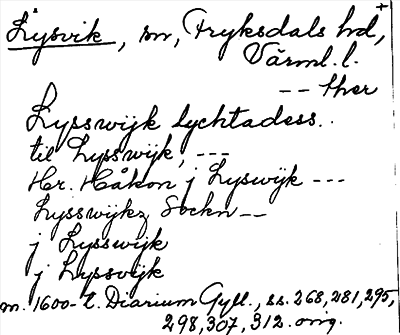 Lysvik, sn, Fryksdals hd,+
Värml. l.
-- ther
Lysswijk lychtadess..
til Lysswijk, ---
Hr. Håkon j Lyswijk ---
Lysswijkz Sockn --
j Lysswijk
j Lyssvijk
m. 1600-t. Diarium Gyll., ss. 268, 281, 295,
298, 307, 312. orig.